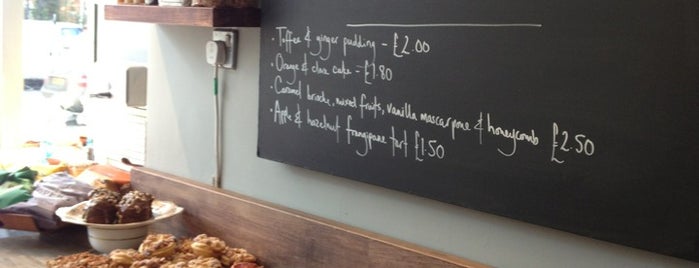 • Toffee & ginger pudding - £2.00
• Orange & clove cake - £1.80
• Caramel brioche, mixed fruits, vanilla mascarpone & honeycomb £2.50
• Apple & hazelnut frangipane tart £1.50